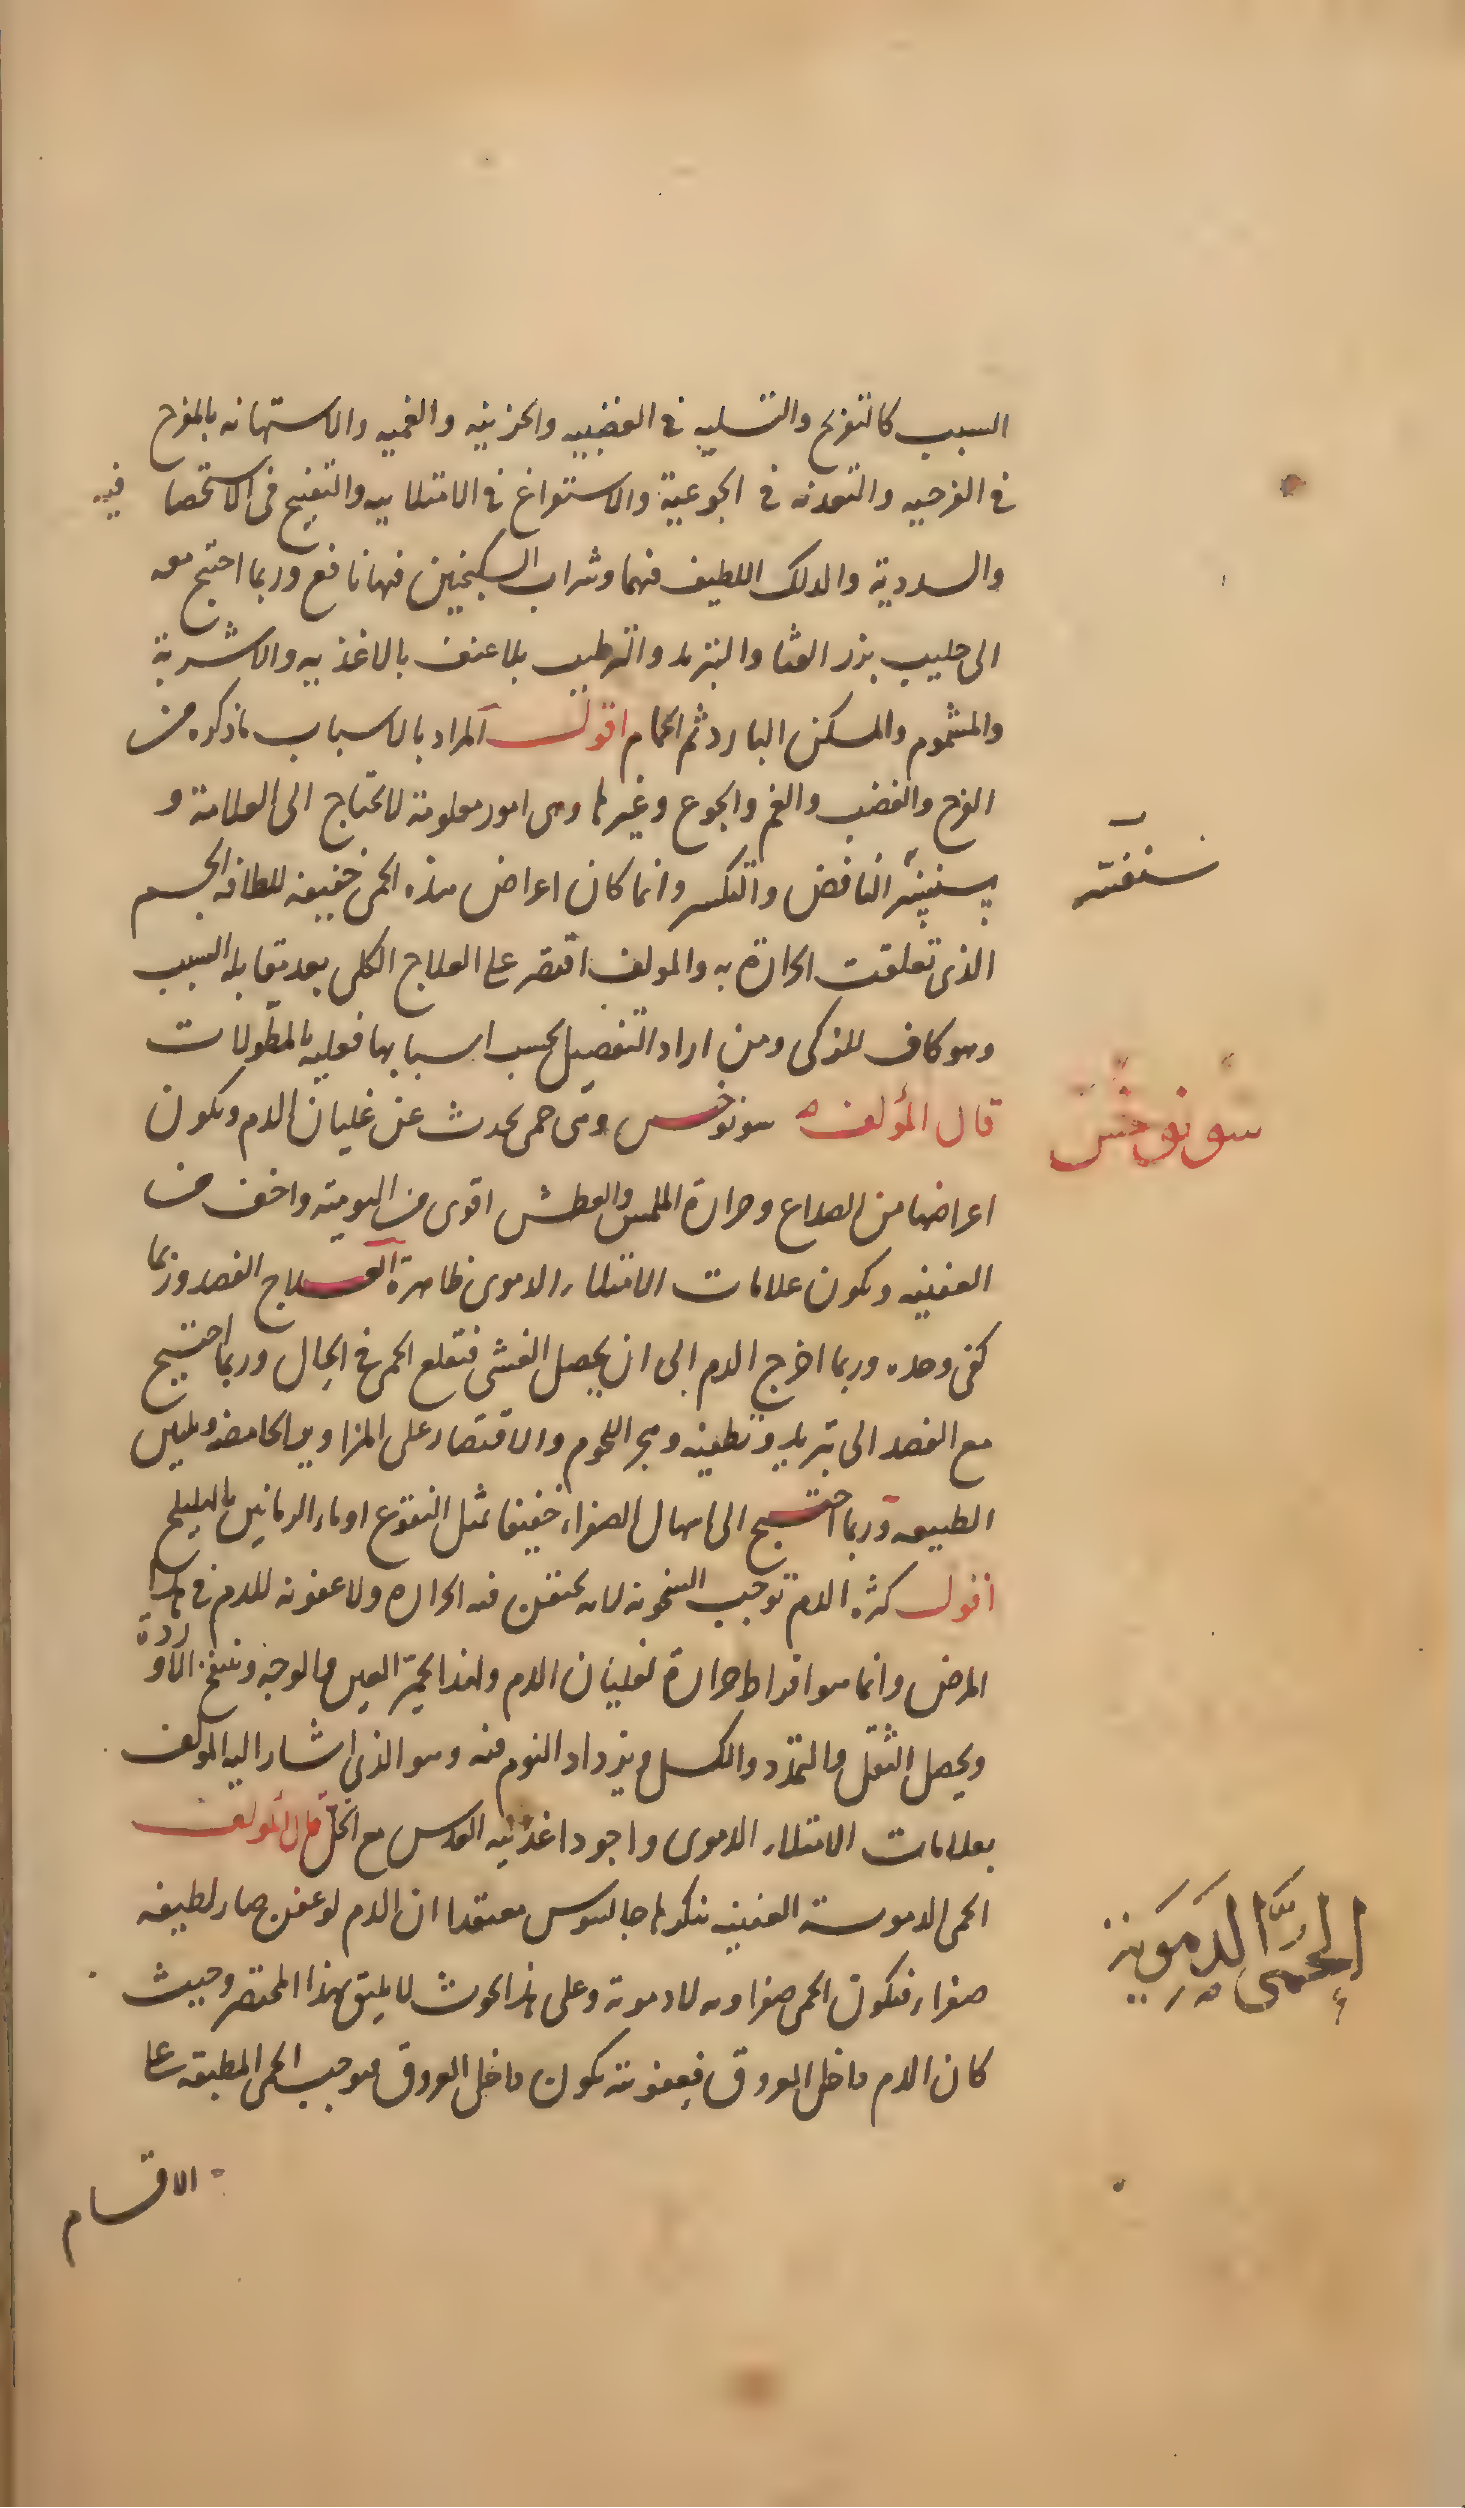 السبب كالتفريح والتسلية فى الغضبيه والحزنيه والغميه والاستهانه بالمفرح
فى الفرحيه والتغدية فى الجوعية والاستفراغ فى الامتلاييه والتفتيح فى الاستحصا فيه
والسددية والدلك اللطيف فيهما وشراب السكنجبين فيها نافع وربما احتيج معه
الى حليب بزر القثا والتبريد والترطيب بلا عنف بالاغذيه والاشربة
والمشموم والمسكن البارد ثم الحمام اقول المراد بالاسباب ما ذكره من
الفرح والغضب والغم والجوع وغيرها وهى امور معلومة لا تحتاج الى العلامة و
النافض والتكسر وانما كان اعراض هذه الحمى خفيفه للطافه الجسم
سنفتيه
الذى تعلقت الحرارة به والمولف اقتصر على العلاج الكلى بعد مقابله السبب
وهو كاف للذكى ومن اراد التفصيل بحسب اسبابها فعليه بالمطولات
قال المؤلف سونوخس وهى حمى تحدث عن غليان الدم وتكون
سونوخس
اعراضها من الصداع وحرارة الملمس والعطش اقوى من اليومية واخف من
العفنيه وتكون علامات الامتلاء الدموى ظاهرة العلاج الفصد وربما
كفى وحده وربما اخرج الدم الى ان يحصل الغشى فتقلع الحمى فى الحال وربما احتيج
مع الفصد الى تبريد وتطفيه وهجر اللحوم والاقتصار على المزاوير الحامضه وتليين
الطبيعه وربما احتيج الى اسهال الصفراء خفيفا بمثل النقوع او ماء الرمانين بالهليلج
اقول كثرة الدم توجب السخونه لانه تحتقن فيه الحراره ولا عفونه للدم فى هذا
المرض وانما هو افراط حرارة لغليان الدم ولهذا يحمر العين والوجه وتنتفخ الاوردة
ويحصل الثقل والتمدد والكسل ويزداد النوم فيه وهو الذى اشار اليه المولف
بعلامات الامتلاء الدموى واجود اغذيته العدس مع الخل قال المولف
الحمى الدموية العفنيه ينكرها جالينوس معتقدا ان الدم لو عفن صار لطيفه
الحمى الدموية
صفراء فتكون الحمى صفراويه لا دموية وعلى هذا بحوث لا يليق بهذا المختصر وحيث
كان الدم داخل العروق فعفونته تكون داخل العروق فيوجب الحمى المطبقه على
الاقسام